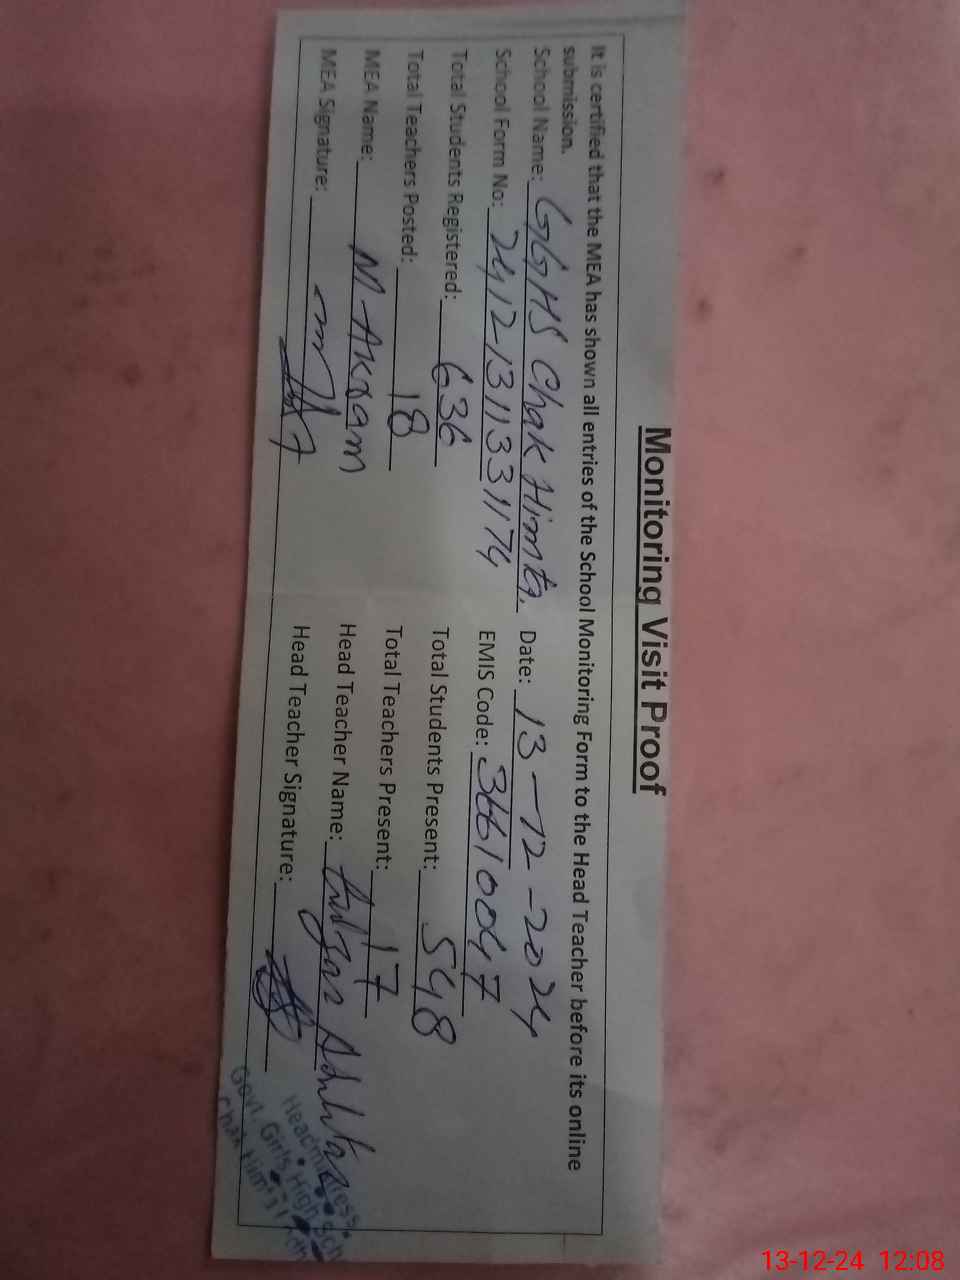 Monitoring Visit Proof
It is certified that the MEA has shown all entries of the School Monitoring Form to the Head Teacher before its online
submission.
School Name: GGHS Chak Himta. Date: 13-12-2024
School Form No: 24121311331174 EMIS Code: 36610047
Total Students Registered: 636 Total Students Present: 548
Total Teachers Posted: 18 Total Teachers Present: 17
MEA Name: M Akram Head Teacher Name:
MEA Signature: Head Teacher Signature:
Headmistress
Govt. Girls High Sch
Chak
13-12-24 12:08